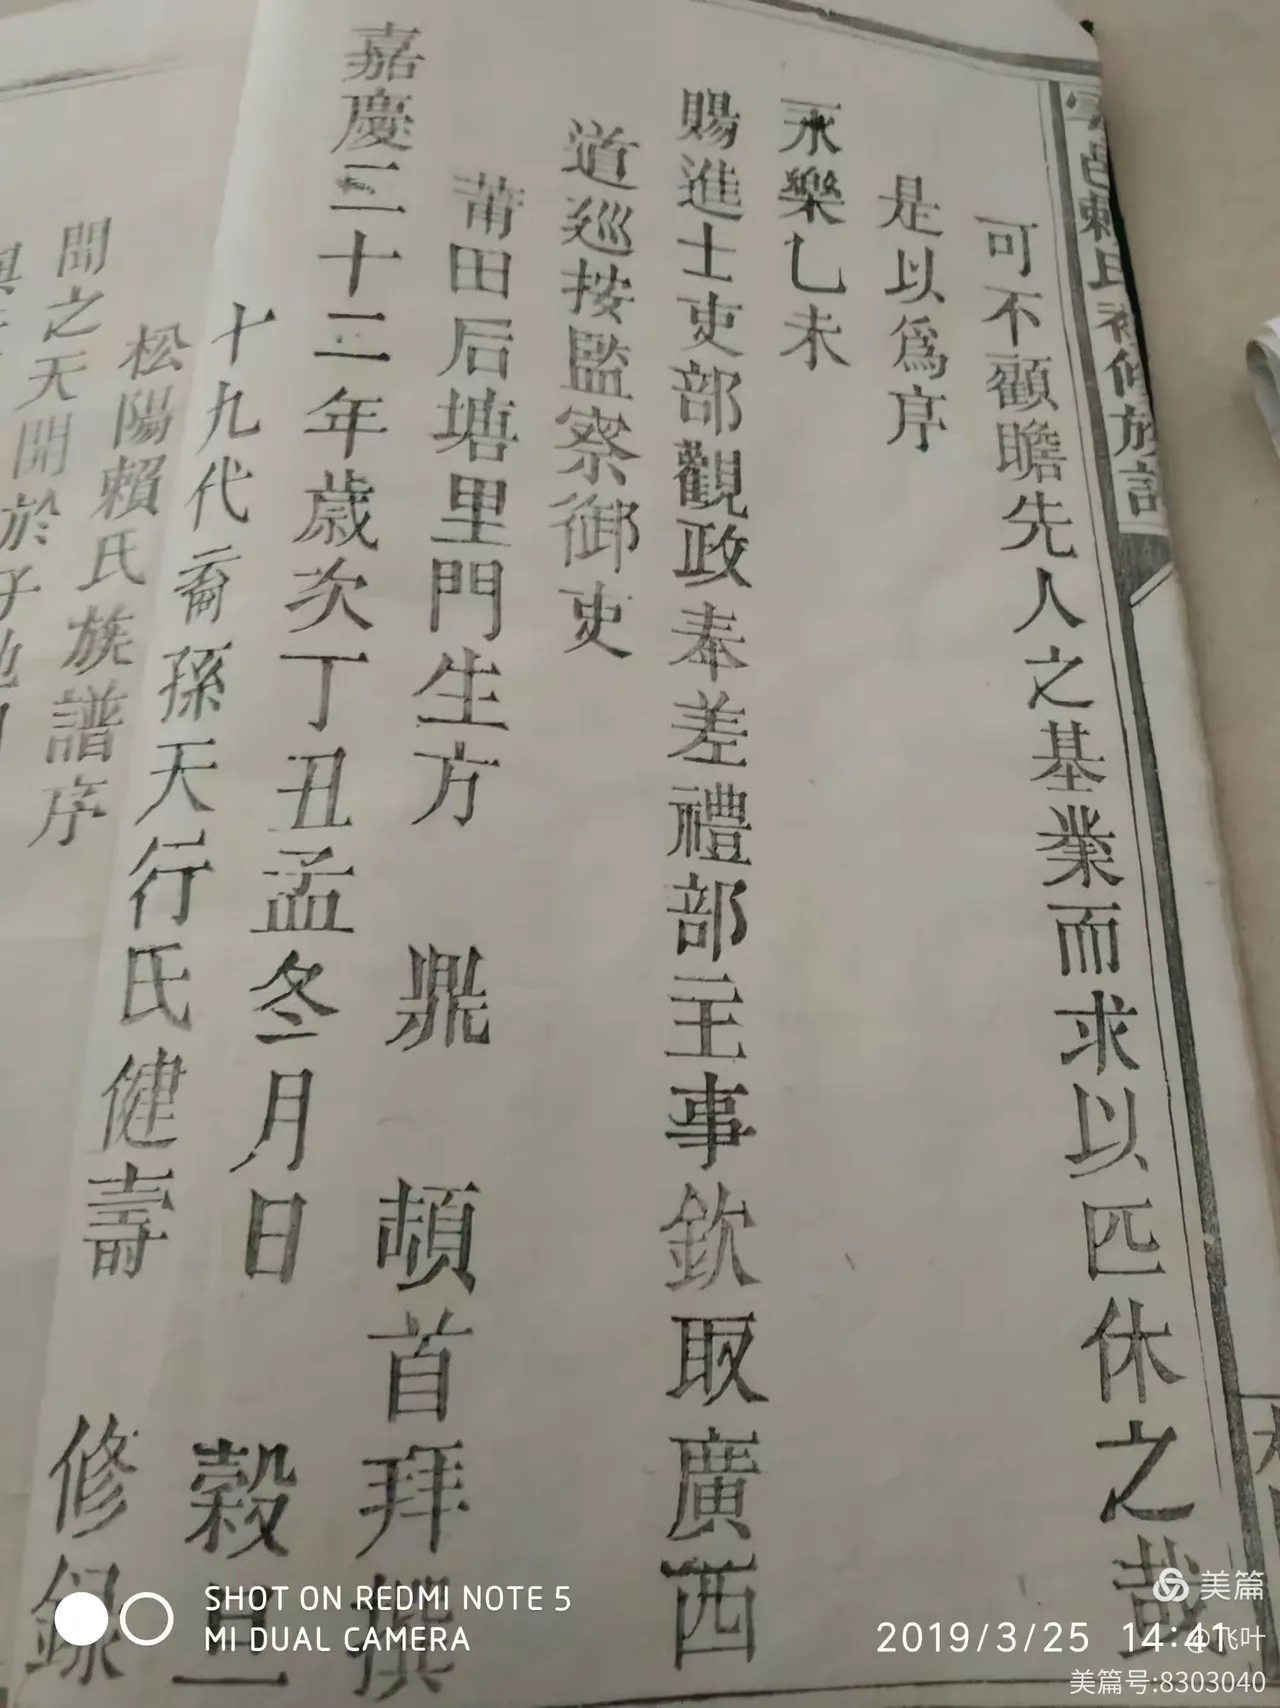 邑賴氏初修族譜
可不顧瞻先人之基業而求以匹休之哉
是以為序
永樂乙未
賜進士吏部觀政奉差禮部主事欽取廣西
道巡按監察御吏
莆田后塘里門生方鼎頓首拜撰
嘉慶二十二年歲次丁丑孟冬月日穀旦
十九代裔孫天行氏健壽修錄
松陽賴氏族譜序
問之天開於子地
SHOT ON REDMI NOTE 5
MI DUAL CAMERA
2019/3/25 14:41
美篇
@飞叶
美篇号:8303040